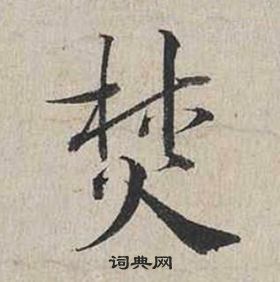 焚
词典网